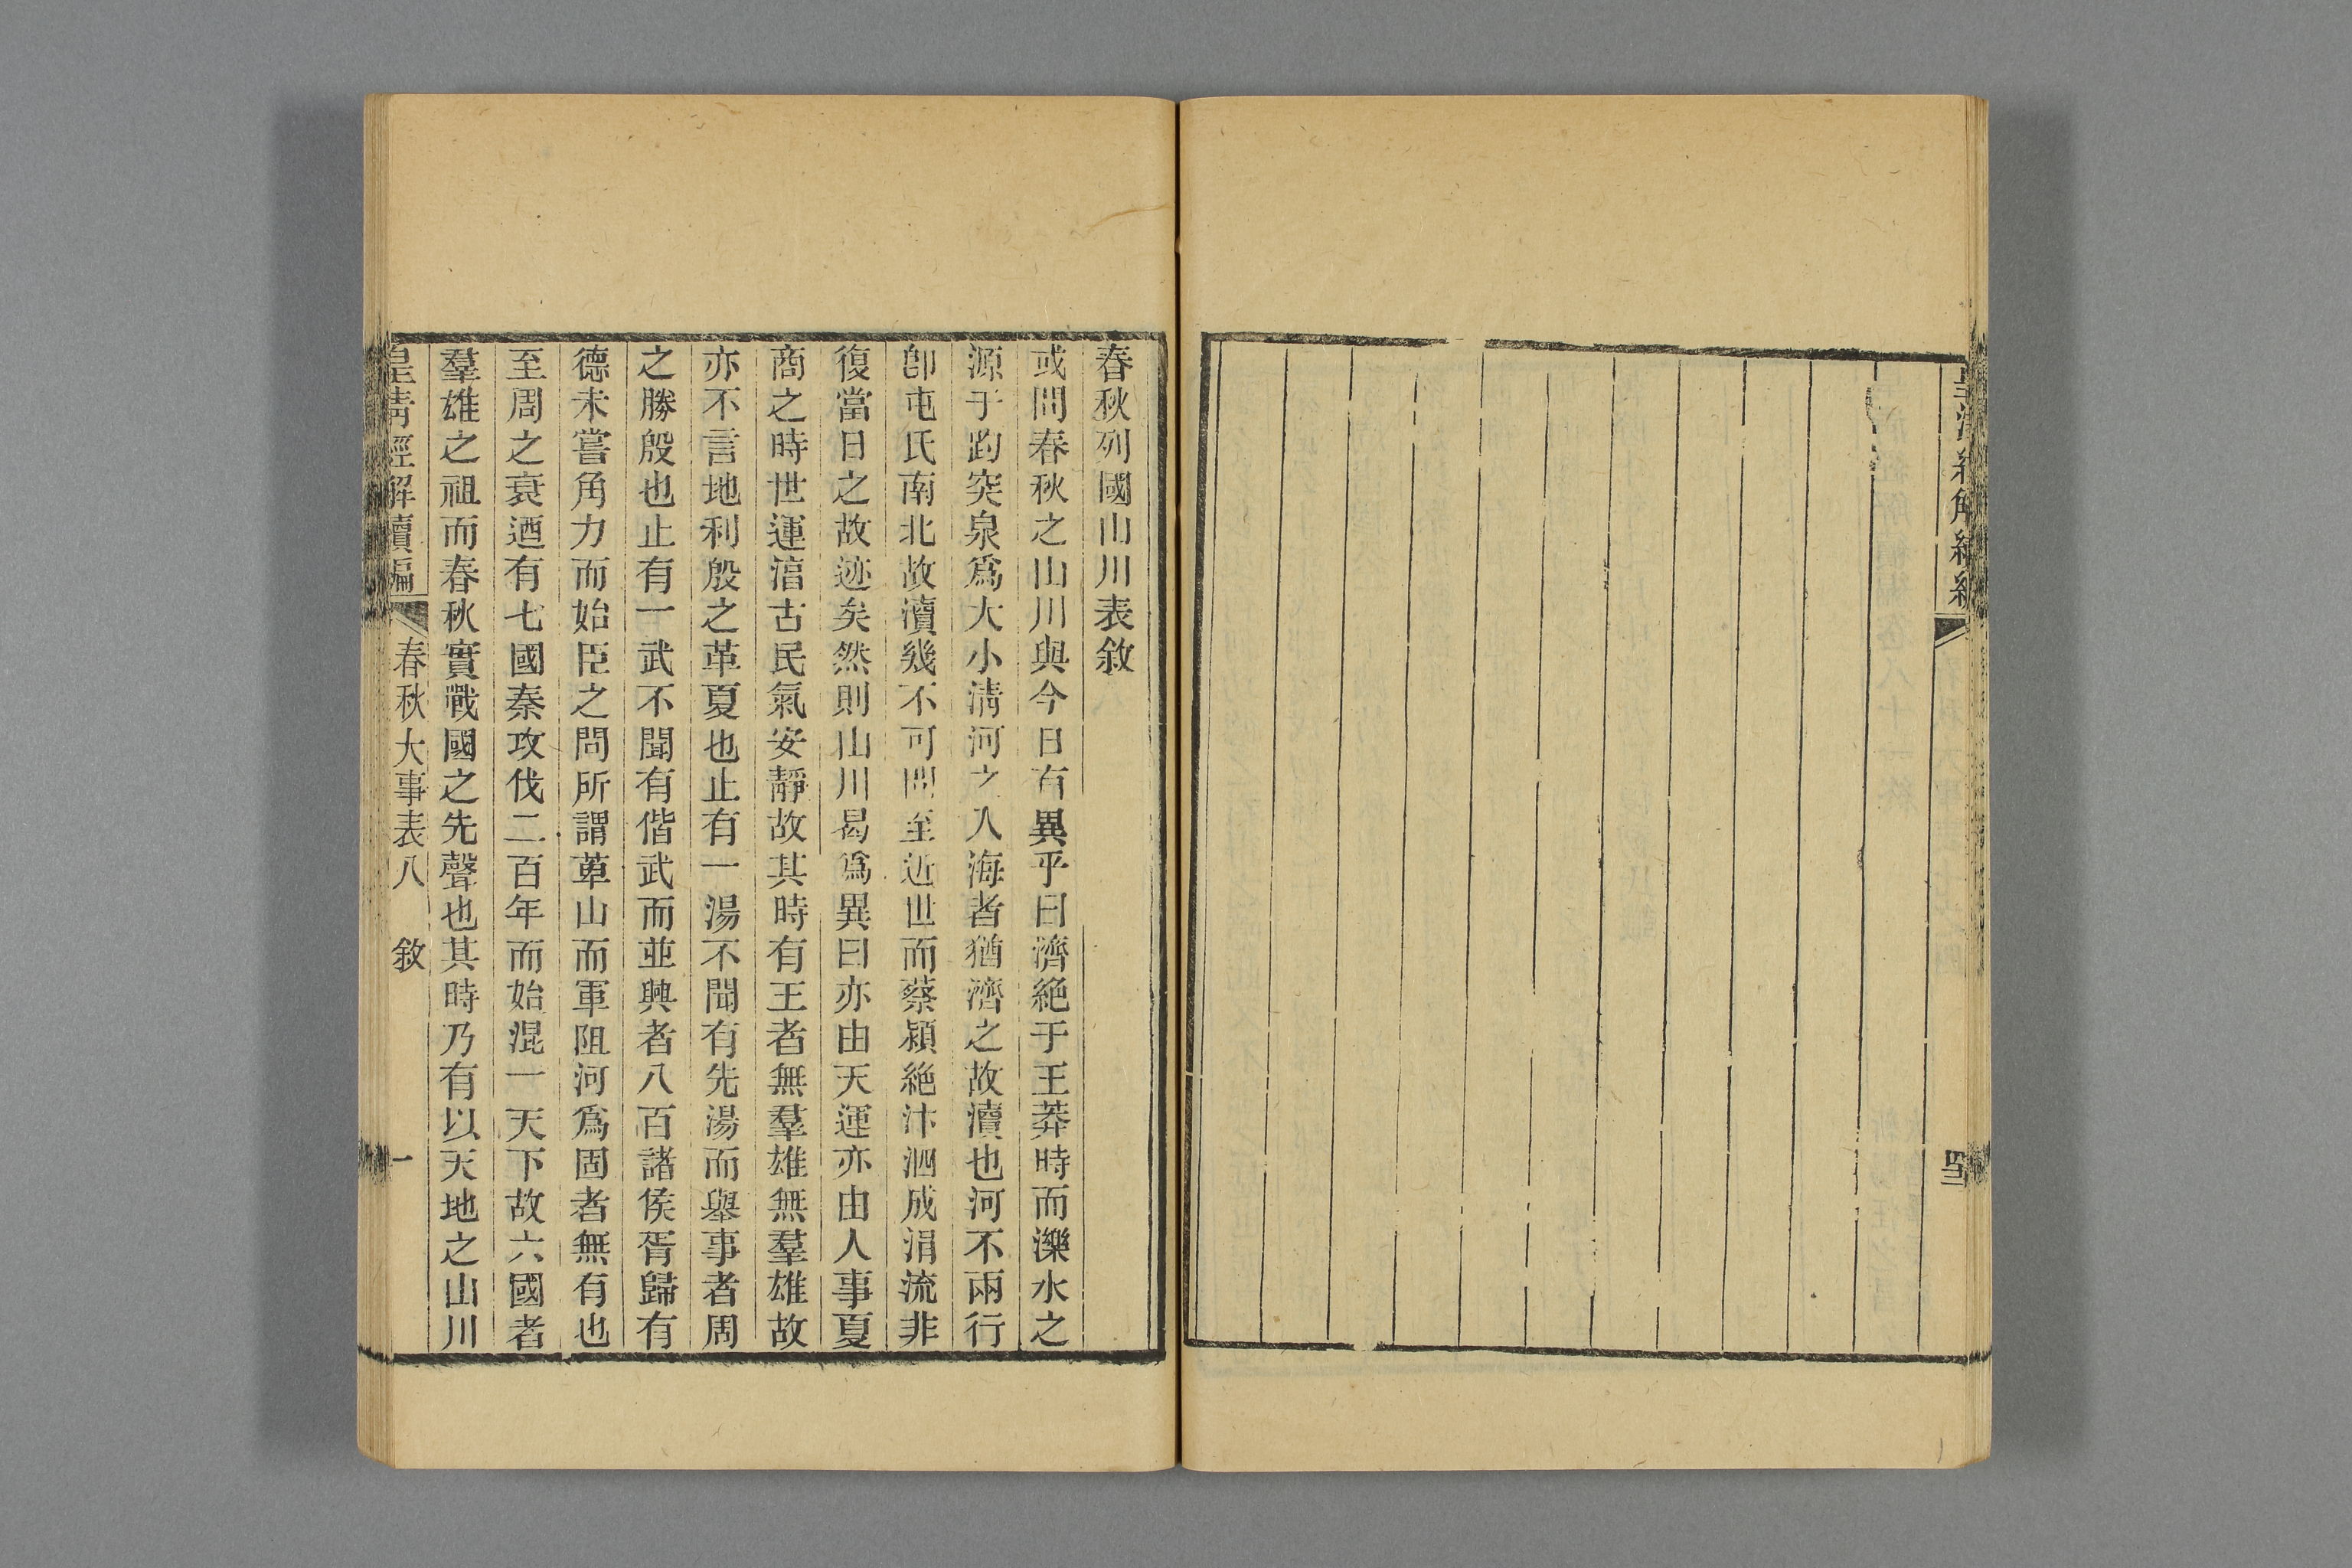 四三
春秋列國山川表敘
或問春秋之山川與今日有異乎曰濟絶于王莽時而濼水之
源于趵突泉爲大小清河之入海者猶濟之故瀆也河不兩行
卽屯氏南北故瀆幾不可問至近世而蔡潁絶汴泗成涓流非
復當日之故迹矣然則山川曷爲異曰亦由天運亦由人事夏
商之時世運湻古民氣安靜故其時有王者無羣雄無羣雄故
亦不言地利殷之革夏也止有一湯不聞有先湯而舉事者周
之勝殷也止有一武不聞有偕武而並興者八百諸侯胥歸有
德未嘗角力而始臣之問所謂萆山而軍阻河爲固者無有也
至周之衰迺有七國秦攻伐二百年而始混一天下故六國者
羣雄之祖而春秋實戰國之先聲也其時乃有以天地之山川
皇清經解續編 春秋大事表八 敘 一